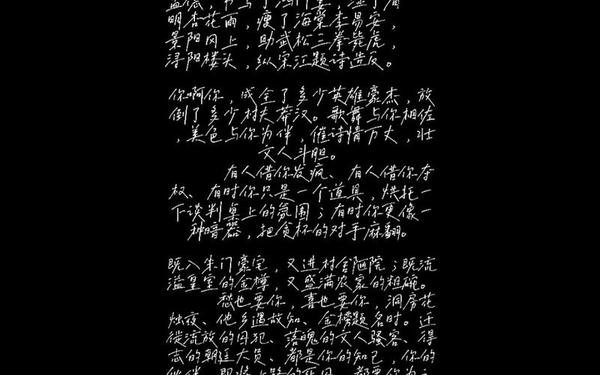 明杏花雨，瘦了海棠李易安，
景阳冈上，助武松三拳毙虎，
浔阳楼头，纵宋江题诗造反。
你啊你，成全了多少英雄豪杰，放
倒了多少村夫莽汉。歌舞与你相佐
，美色与你为伴，催诗情万丈，壮
文人斗胆。
有人借你发疯、有人借你夺
权、有时你只是一个道具，烘托一
下谈判桌上的氛围；有时你更像一
种暗器，把贪杯的对手麻翻。
既入朱门豪宅，又进村舍陋院；既流
溢皇室的金樽，又盛满农家的粗碗。
愁也要你，喜也要你，洞房花
烛夜、他乡遇故知、金榜题名时。迁
徙流放的囚犯、落魄的文人骚客、得
志的朝廷大员、都是你的知己，你的